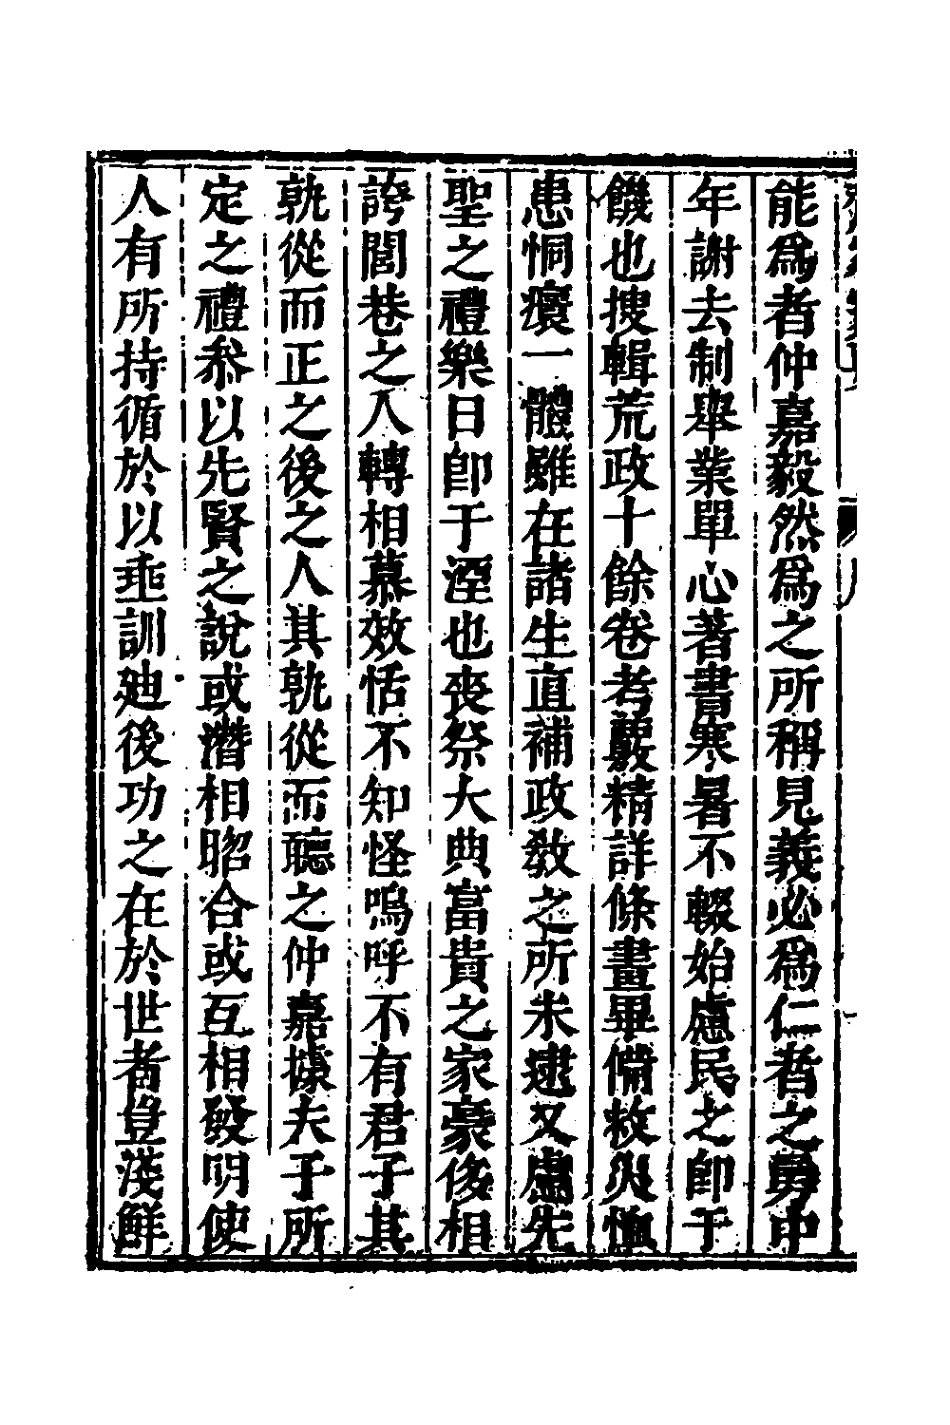 能爲者仲嘉毅然爲之所稱見義必爲仁者之勇中
年謝去制舉業單心著書寒暑不輟始慮民之卽于
饑也搜輯荒政十餘卷考覈精詳條畫畢備救災恤
患恫瘝一體雖在諸生直補政敎之所未逮又慮先
聖之禮樂日卽于湮也喪祭大典富貴之家豪侈相
誇閭巷之人轉相慕效恬不知怪嗚呼不有君子其
孰從而正之後之人其孰從而聽之仲嘉據夫子所
定之禮叅以先賢之說或濳相昭合或互相發明使
人有所持循於以垂訓廸後功之在於世者豈淺鮮